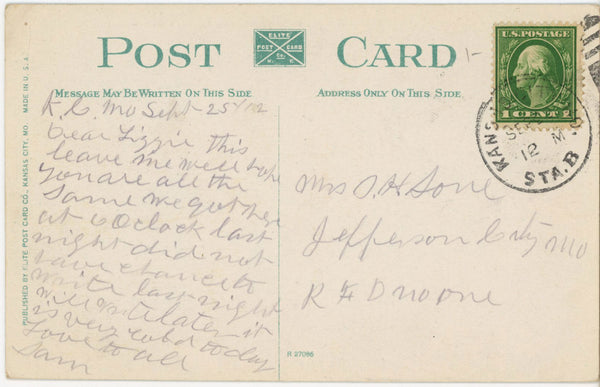 POST CARD
ELITE
POST CARD
Co.
K. C.
MESSAGE MAY BE WRITTEN ON THIS SIDE
ADDRESS ONLY ON THIS SIDE
U.S. POSTAGE
1 CENT 1
KANS
SE
12 M
STA. B
K. C. Mo Sept 25/12
Dear Lizzie this
leave me well hope
you are all the
Same we got here
at 6 Oclock last
night did not
have chance to
write last night
will write later it
is very cold today
Love to all
Sam
Mrs S. H
Jefferson City Mo
R F D no one
PUBLISHED BY ELITE POST CARD CO., KANSAS CITY, MO. MADE IN U.S.A.
R 27086